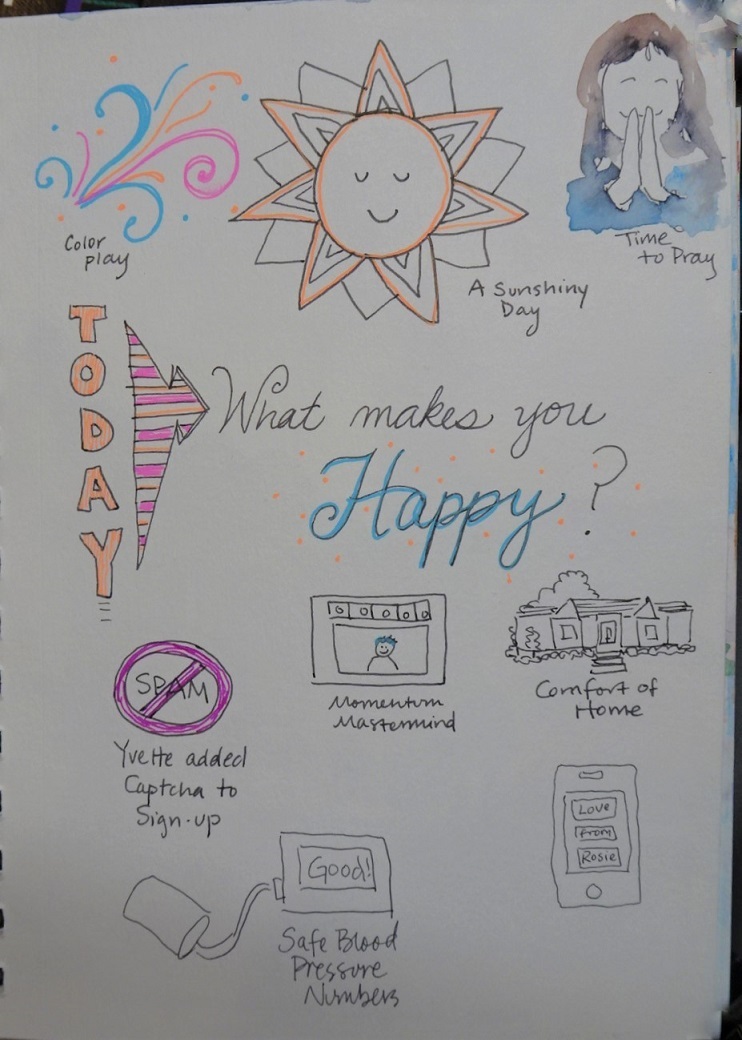 Color
play
A Sunshiny
Day
Time
to Pray
TODAY
What makes you
Happy?
SPAM
Yvette added
Captcha to
Sign-up
Momentum
Mastermind
Comfort of
Home
Love
From
Rosie
Good!
Safe Blood
Pressure
Numbers